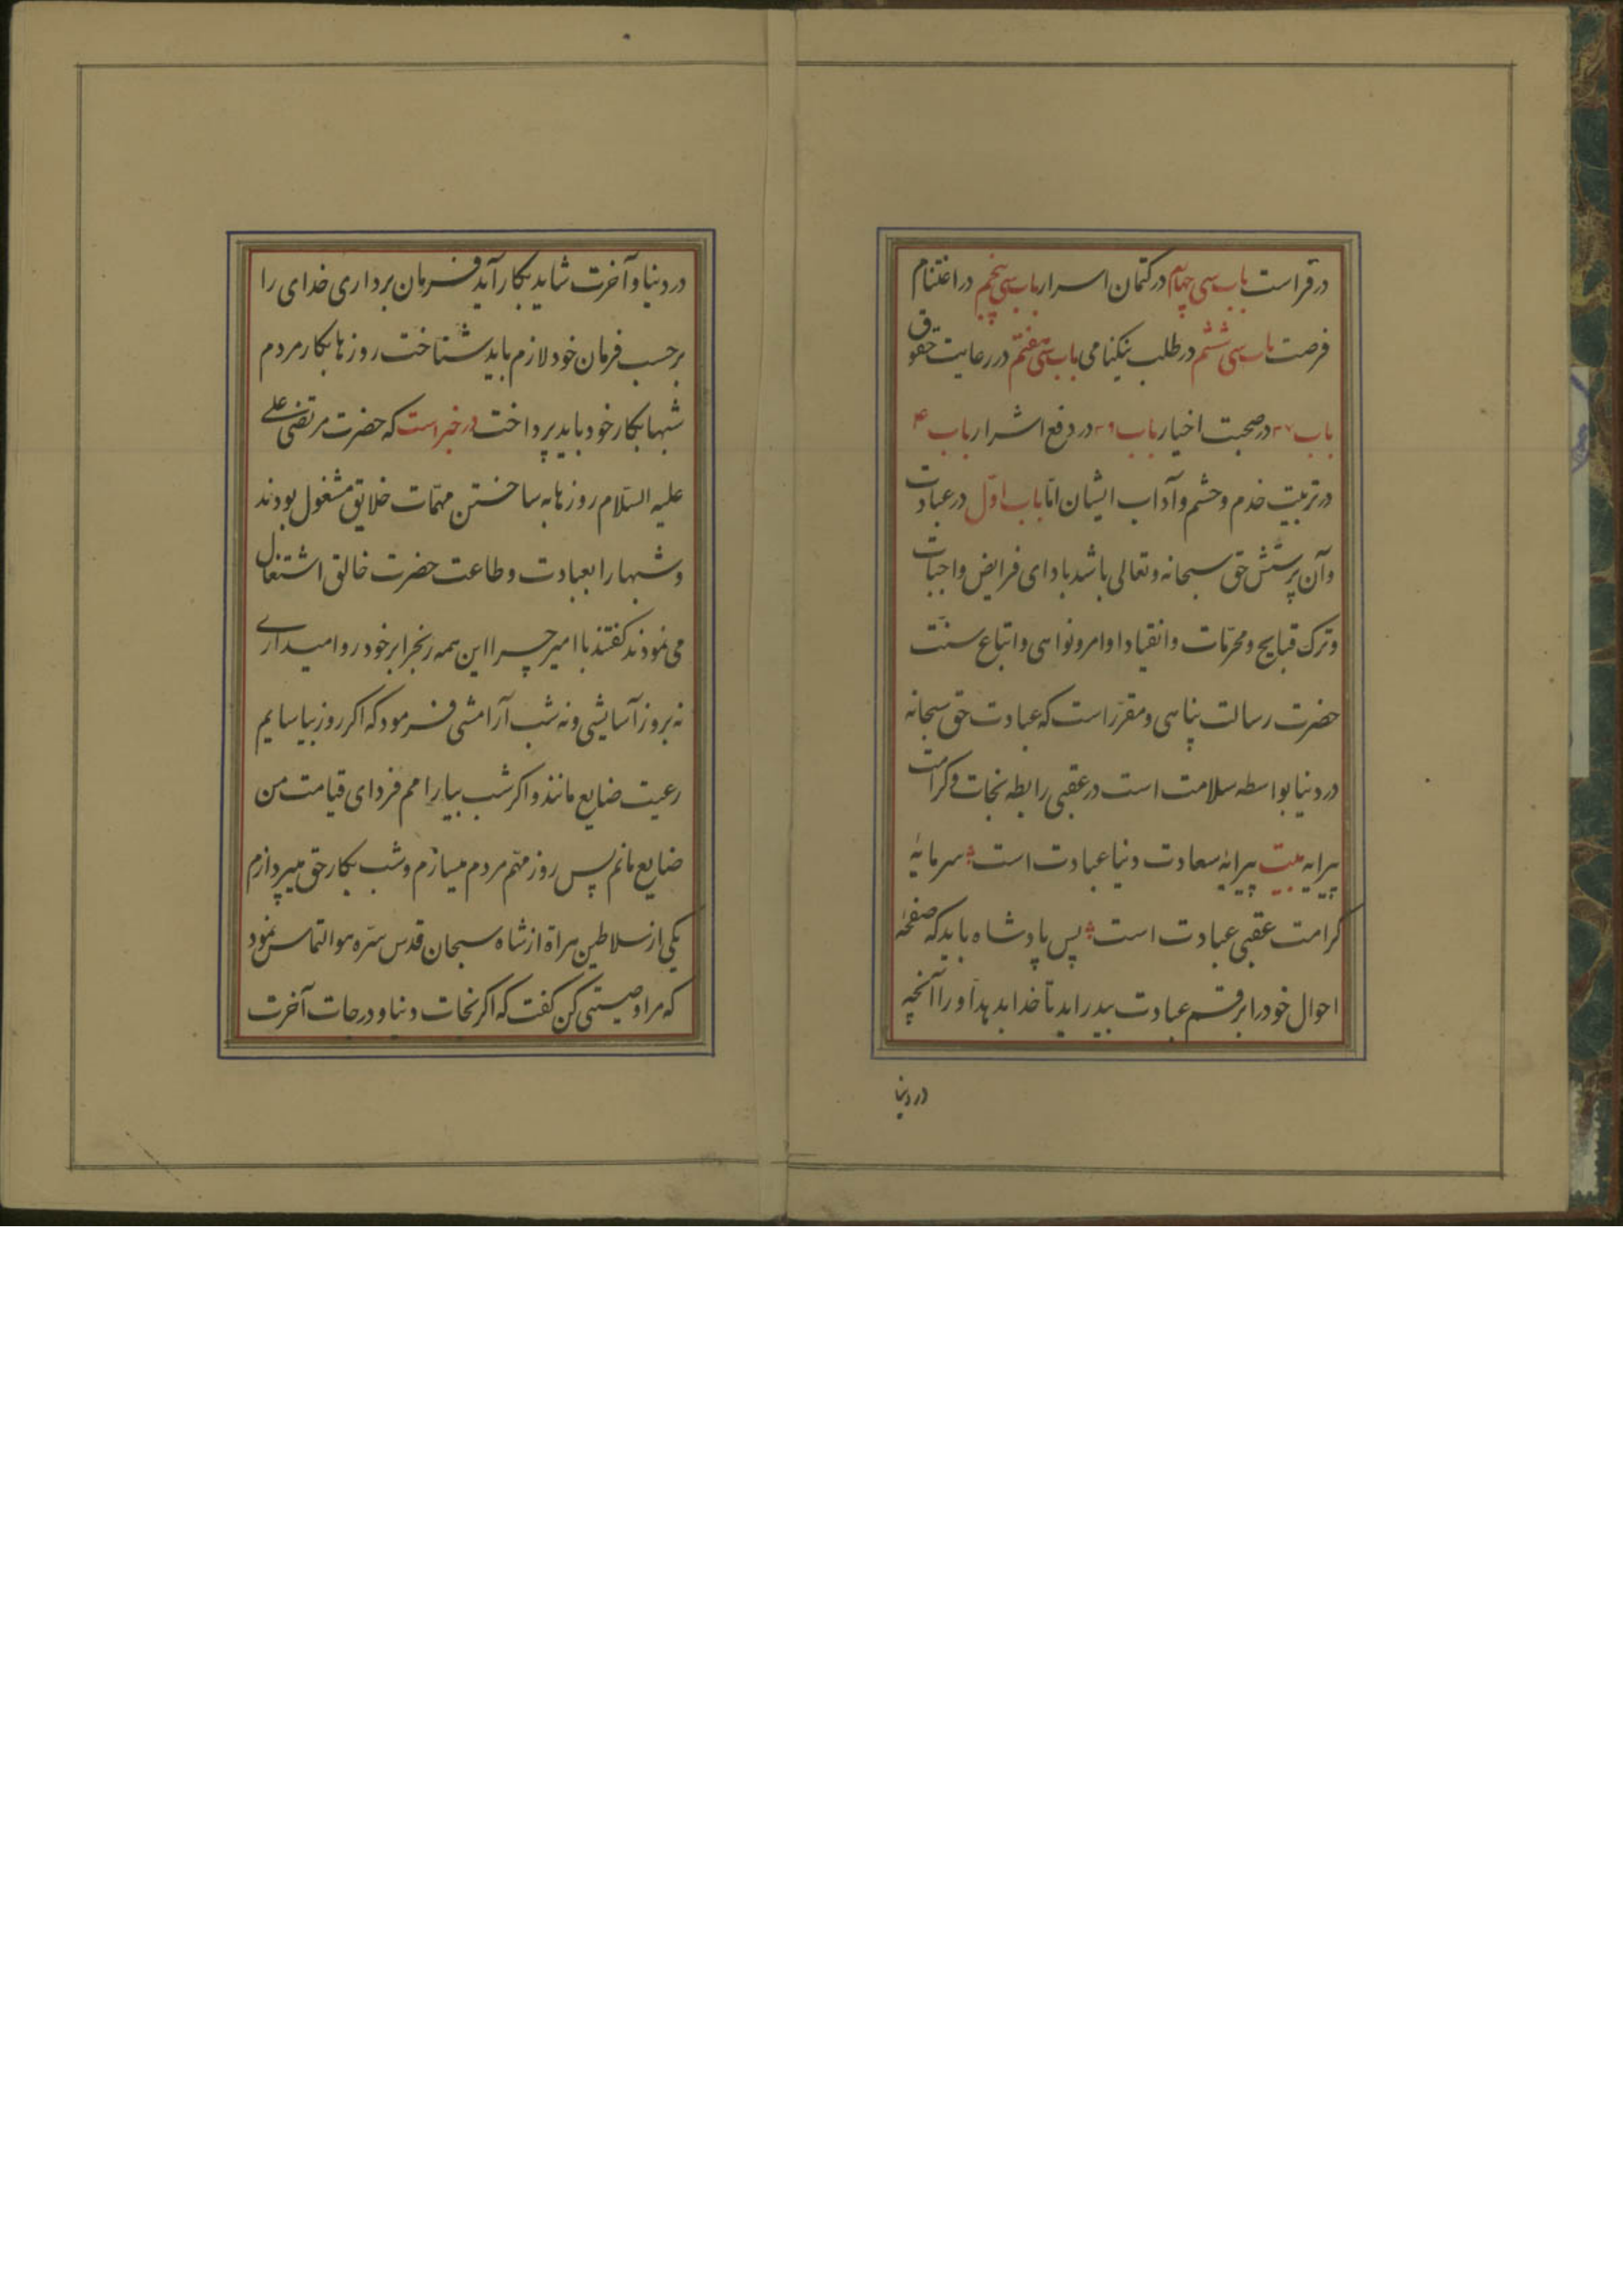 در فراست باب سی چهارم در کتمان اسرار باب سی پنجم در اغتنام
فرصت باب سی ششم در طلب نیکنامی باب سی هفتم در رعایت حقوق
باب ۳۷ در صحبت اخیار باب ۳۹ در دفع اشرار باب ۴
در تربیت خدم و حشم و آداب ایشان اما باب اوّل در عبادت
و آن پرستش حق سبحانه و تعالی باشد بادای فرایض واجبات
و ترک قبایح و محرّمات و انقیاد اوامر و نواهی و اتباع سنّت
حضرت رسالت پناهی و مقرّر است که عبادت حق سبحانه
در دنیا بواسطه سلامت است در عقبی رابطه نجات و کرامت
پیرایه بیت پیرایهٔ سعادت دنیا عبادت است سرمایهٔ
کرامت عقبی عبادت است پس پادشاه باید که صفحهٔ
احوال خود را برقم عبادت بیدراید تا خداید بدو را آنچه
در دنیا
در دنیا و آخرت شاید بکار آید فرمان برداری خدای را
برحسب فرمان خود لازم باید شناخت روزها بکار مردم
شبها بکار خود باید پرداخت در خبر است که حضرت مرتضی علی
علیه السّلام روزها به ساختن مهمّات خلایق مشغول بودند
و شبها را بعبادت و طاعت حضرت خالق اشتغال
می نمودند کفتند یا امیر چرا این همه رنج را بر خود روا میداری
نه بروز آسایشی و نه شب آرامشی فرمود که اکر روز بیاسایم
رعیت ضایع مانند و اکر شب بیارامم فردای قیامت من
ضایع مانم پس روز مهّم مردم میسازم و شب بکار حق میپردازم
یکی از سلاطین هراة از شاه سبحان قدس سرّه هو التماس نمود
که مرا وصیتی کن کفت که اکر نجات دنیا و درجات آخرت